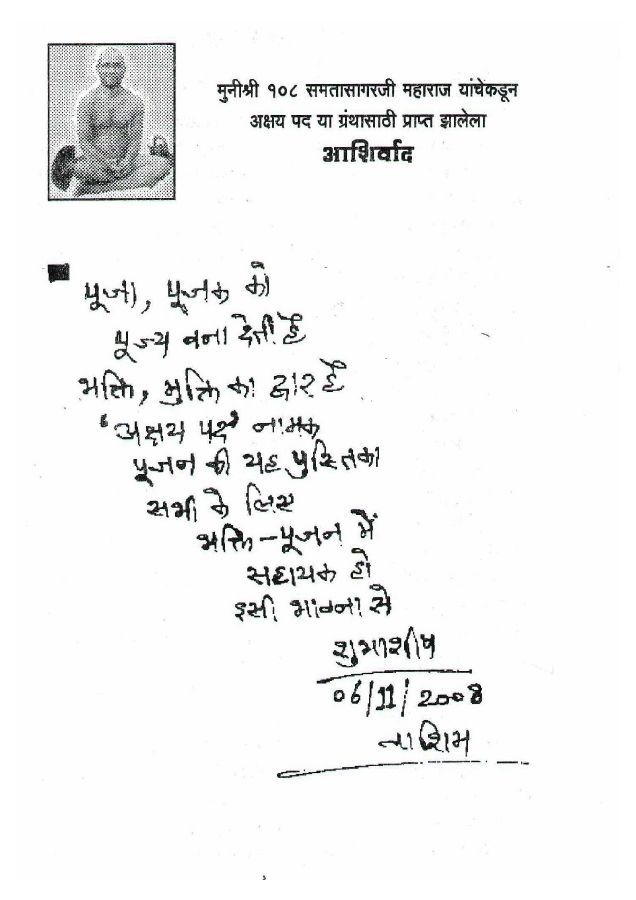 मुनीश्री १०८ समतासागरजी महाराज यांचेकडून
अक्षय पद या ग्रंथासाठी प्राप्त झालेला
आशिर्वाद
पूजा, पूजक को
पूज्य बना देती है
भक्ति, मुक्ति का द्वार है
'अक्षय पद' नामक
पूजन की यह पुस्तिका
सभी के लिए
भक्ति-पूजन में
सहायक हो
इसी भावना से
शुभाशीष
06/11/2008